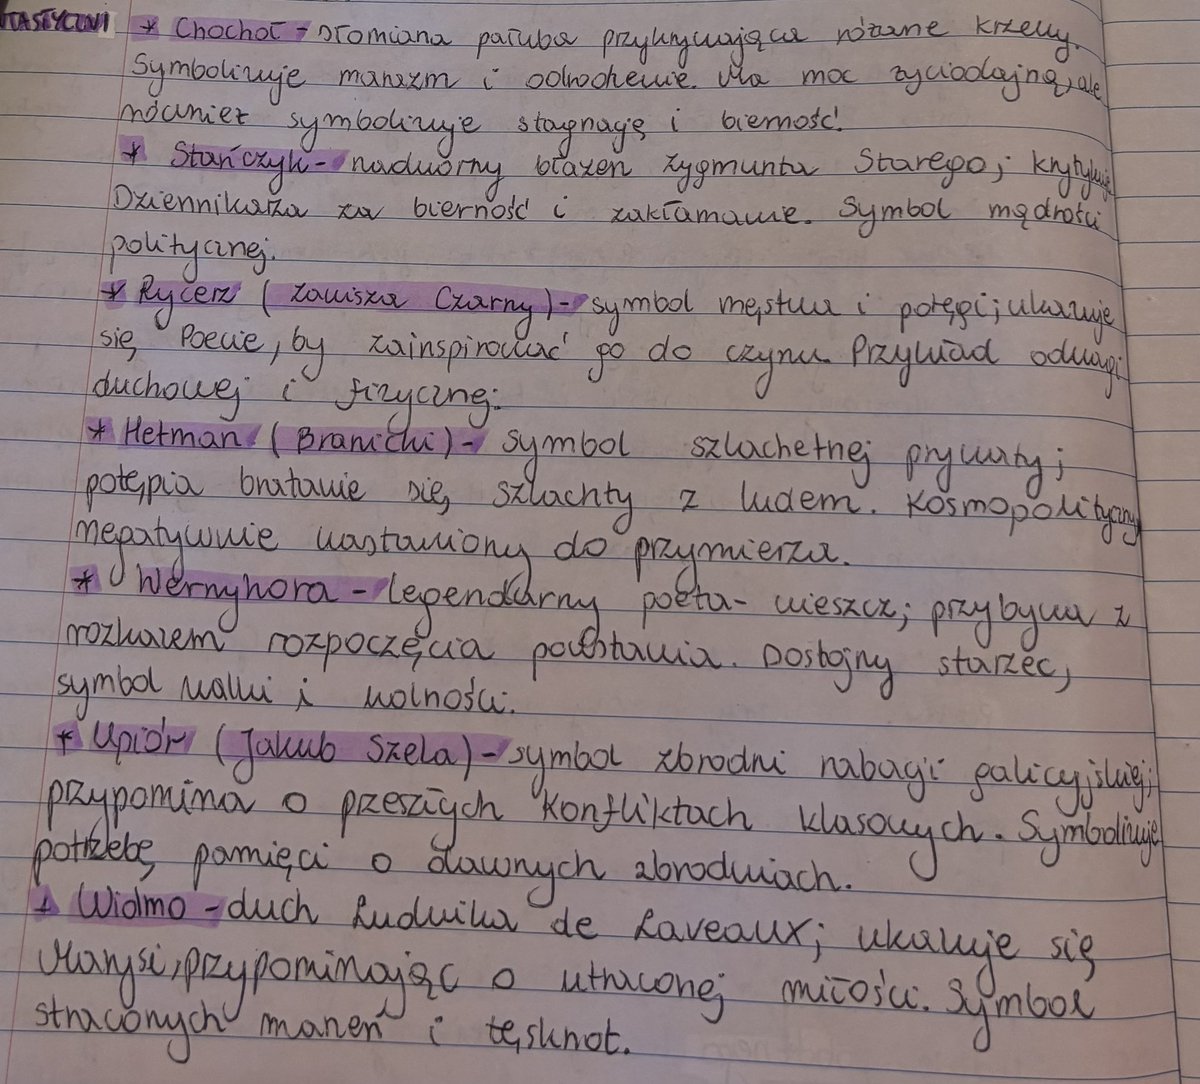 * Chochoł - słomiana pałuba przykrywająca różane krzewy.
Symbolizuje marazm i odrodzenie. Ma moc życiodajną, ale
również symbolizuje stagnację i bierność.
* Stańczyk - nadworny błazen Zygmunta Starego; krytykuje
Dziennikarza za bierność i zakłamanie. Symbol mądrości
politycznej.
* Rycerz (Zawisza Czarny) - symbol męstwa i potęgi; ukazuje
się Poecie, by zainspirować go do czynu. Przykład odwagi
duchowej i fizycznej.
* Hetman (Branicki) - symbol szlachetnej prywaty;
potępia bratanie się szlachty z ludem. Kosmopolityczny
negatywnie nastawiony do przymierza.
* Wernyhora - legendarny poeta - wieszcz; przybywa z
rozkazem rozpoczęcia powstania. Dostojny starzec,
symbol walki i wolności.
* Upiór (Jakub Szela) - symbol zbrodni rabacji galicyjskiej;
przypomina o przeszłych konfliktach klasowych. Symbolizuje
potrzebę pamięci o dawnych zbrodniach.
* Widmo - duch Ludwika de Laveaux; ukazuje się
Marysi, przypominając o utraconej miłości. Symbol
straconych marzeń i tęsknot.